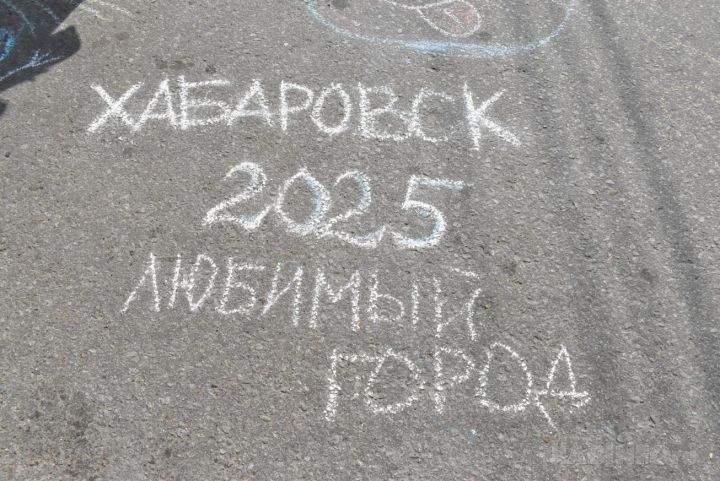 ХАБАРОВСК
2025
ЛЮБИМЫЙ
ГОРОД